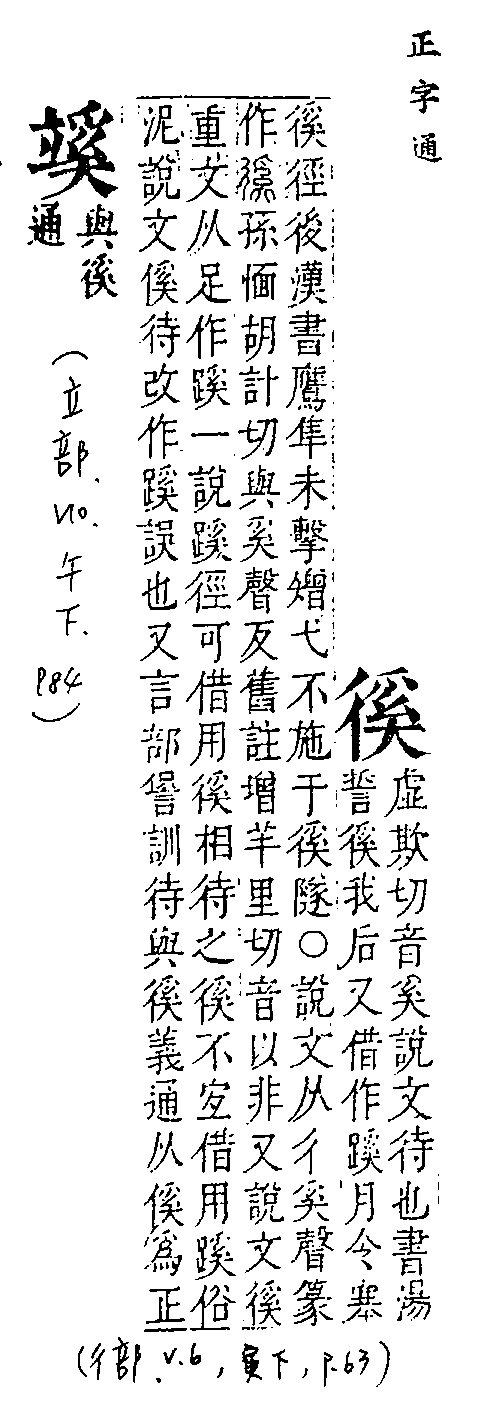 正字通
徯
虛欺切音奚說文待也書湯
誓徯我后又借作蹊月令塞
徯徑後漢書鷹隼未擊矰弋不施于徯隧○說文从彳奚聲篆
作孫愐胡計切與奚聲反舊註增羊里切音以非又說文徯
重文从足作蹊一說蹊徑可借用徯相待之徯不宐借用蹊俗
泥說文傒待改作蹊誤也又言部訓待與徯義通从傒爲正
(彳部. v.6, 寅下, p.63)
與徯
通
(立部. no. 午下. p84)